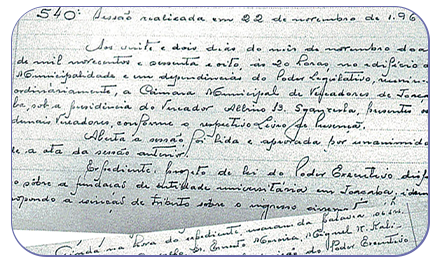 540ª Sessão realizada em 22 de novembro de 196
Aos vinte e dois dias do mês de novembro do a
de mil novecentos e sessenta e oito, às 20 horas, no edifício d
Municipalidade e em dependências do Poder Legislativo, reuniu-
ordinariamente, a Câmara Municipal de Vereadores de Joaça
ba, sob a presidência do Vereador Albino B. Sganzerla, presentes os
demais Vereadores, conforme o respectivo Livro de Presença.
Aberta a sessão foi lida e aprovada por unanimida
de a ata da sessão anterior.
Expediente: projeto de lei do Poder Executivo disp
o sôbre a fundação de entidade universitária em Joaçaba, idem
a isenção de tributo sôbre o ingresso
Ainda na hora do expediente usaram da palavra os srs.
Dr. Ernesto Moreira, Miguel K.
do Poder Executivo